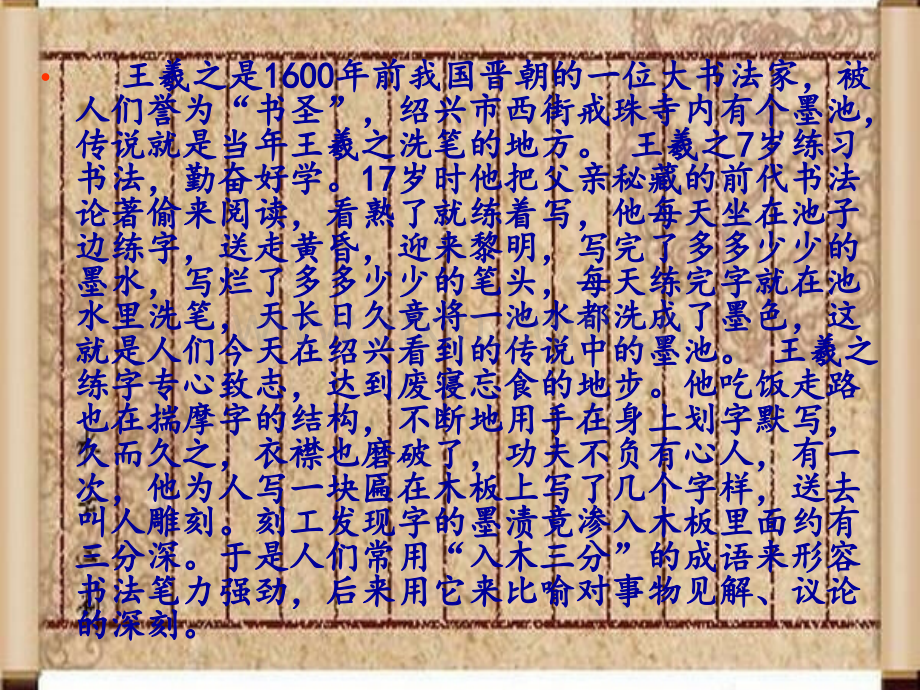 • 王羲之是1600年前我国晋朝的一位大书法家，被
人们誉为“书圣”，绍兴市西街戒珠寺内有个墨池，
传说就是当年王羲之洗笔的地方。 王羲之7岁练习
书法，勤奋好学。17岁时他把父亲秘藏的前代书法
论著偷来阅读，看熟了就练着写，他每天坐在池子
边练字，送走黄昏，迎来黎明，写完了多多少少的
墨水，写烂了多多少少的笔头，每天练完字就在池
水里洗笔，天长日久竟将一池水都洗成了墨色，这
就是人们今天在绍兴看到的传说中的墨池。 王羲之
练字专心致志，达到废寝忘食的地步。他吃饭走路
也在揣摩字的结构，不断地用手在身上划字默写，
久而久之，衣襟也磨破了，功夫不负有心人，有一
次，他为人写一块匾在木板上写了几个字样，送去
叫人雕刻。刻工发现字的墨渍竟渗入木板里面约有
三分深。于是人们常用“入木三分”的成语来形容
书法笔力强劲，后来用它来比喻对事物见解、议论
的深刻。